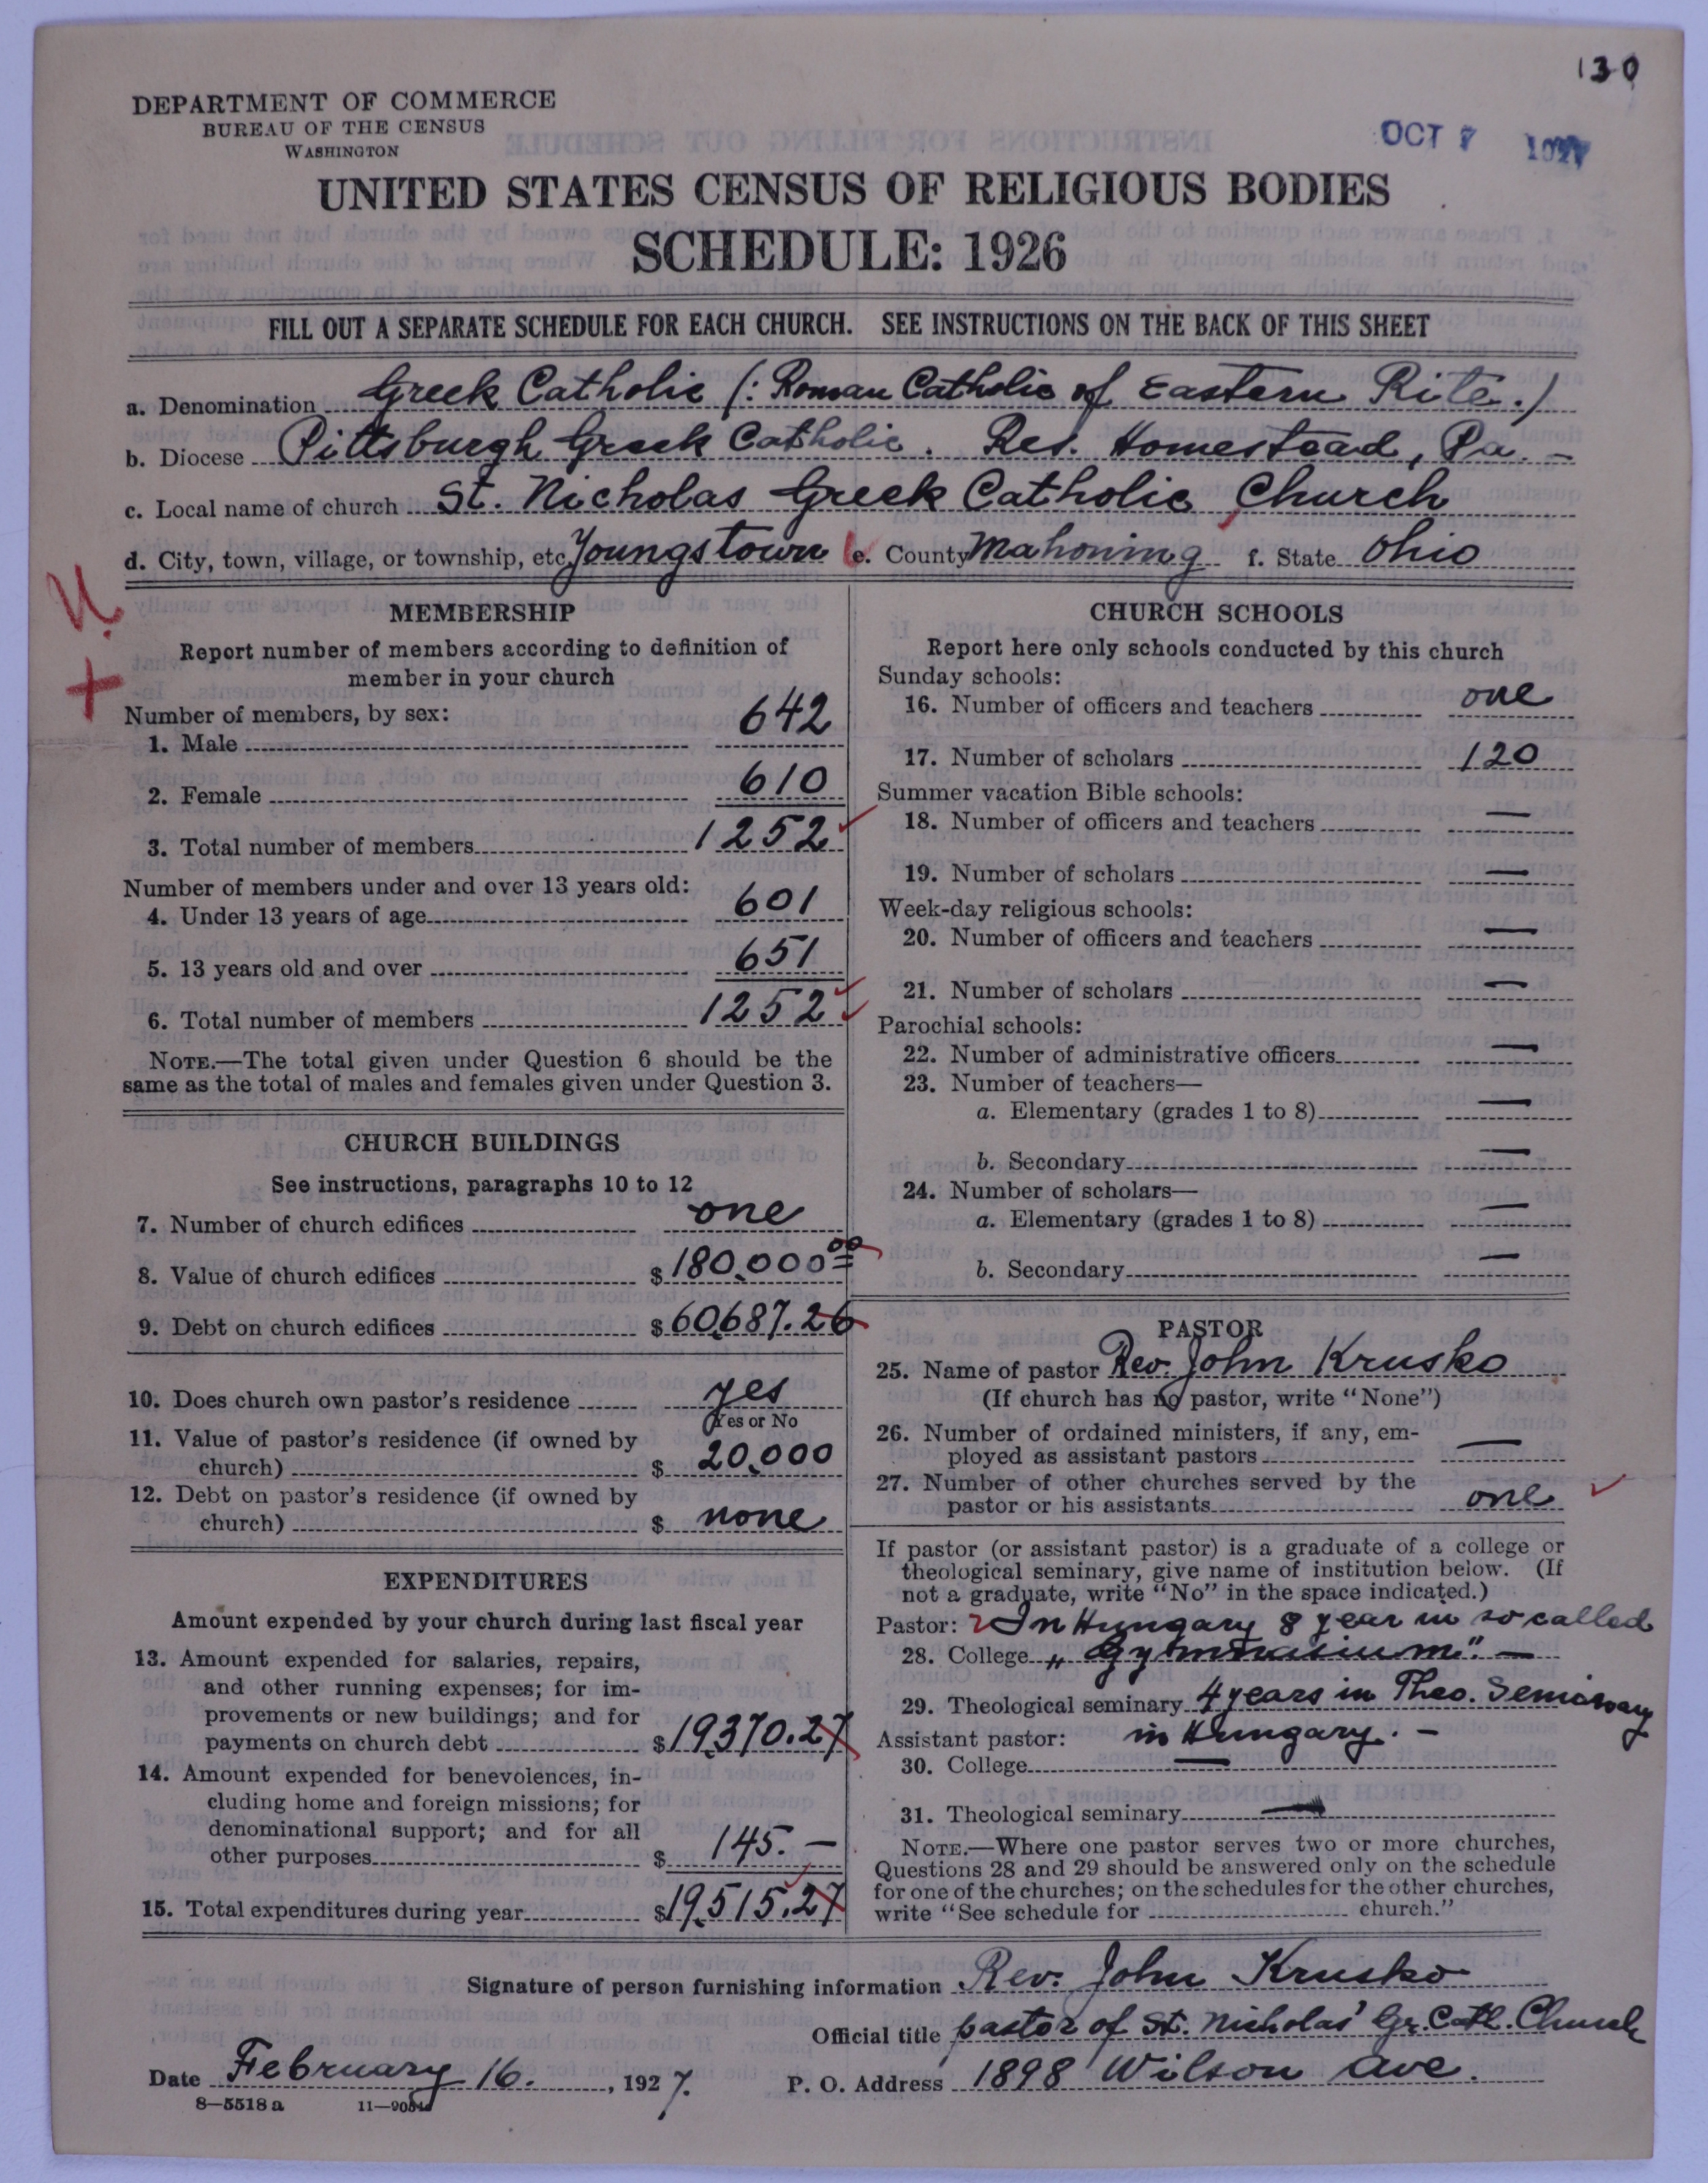 130
DEPARTMENT OF COMMERCE
BUREAU OF THE CENSUS
WASHINGTON
OCT 7 1927
UNITED STATES CENSUS OF RELIGIOUS BODIES
SCHEDULE: 1926
FILL OUT A SEPARATE SCHEDULE FOR EACH CHURCH. SEE INSTRUCTIONS ON THE BACK OF THIS SHEET
a. Denomination Greek Catholic (: Roman Catholic of Eastern Rite.)
b. Diocese Pittsburgh Greek Catholic. Res. Homestead, Pa. —
c. Local name of church St. Nicholas Greek Catholic Church
d. City, town, village, or township, etc. Youngstown e. County Mahoning f. State Ohio
MEMBERSHIP
Report number of members according to definition of
member in your church
Number of members, by sex:
1. Male 642
2. Female 610
3. Total number of members 1252
Number of members under and over 13 years old:
4. Under 13 years of age 601
5. 13 years old and over 651
6. Total number of members 1252
NOTE.—The total given under Question 6 should be the
same as the total of males and females given under Question 3.
CHURCH BUILDINGS
See instructions, paragraphs 10 to 12
7. Number of church edifices one
8. Value of church edifices $180,000 00
9. Debt on church edifices $60,687.26
10. Does church own pastor's residence yes
Yes or No
11. Value of pastor's residence (if owned by
church) $ 20,000
12. Debt on pastor's residence (if owned by
church) $ none
EXPENDITURES
Amount expended by your church during last fiscal year
13. Amount expended for salaries, repairs,
and other running expenses; for im-
provements or new buildings; and for
payments on church debt $19,370.27
14. Amount expended for benevolences, in-
cluding home and foreign missions; for
denominational support; and for all
other purposes $ 145. —
15. Total expenditures during year $19,515.27
CHURCH SCHOOLS
Report here only schools conducted by this church
Sunday schools:
16. Number of officers and teachers one
17. Number of scholars 120
Summer vacation Bible schools:
18. Number of officers and teachers —
19. Number of scholars —
Week-day religious schools:
20. Number of officers and teachers —
21. Number of scholars —
Parochial schools:
22. Number of administrative officers —
23. Number of teachers—
a. Elementary (grades 1 to 8) —
b. Secondary —
24. Number of scholars—
a. Elementary (grades 1 to 8) —
b. Secondary —
PASTOR
25. Name of pastor Rev. John Krusko
(If church has no pastor, write "None")
26. Number of ordained ministers, if any, em-
ployed as assistant pastors —
27. Number of other churches served by the
pastor or his assistants one
If pastor (or assistant pastor) is a graduate of a college or
theological seminary, give name of institution below. (If
not a graduate, write "No" in the space indicated.)
Pastor: In Hungary 8 year in so called
28. College „Gymnasium." —
29. Theological seminary 4 years in Theo. Seminary
Assistant pastor: in Hungary. —
30. College —
31. Theological seminary —
NOTE.—Where one pastor serves two or more churches,
Questions 28 and 29 should be answered only on the schedule
for one of the churches; on the schedules for the other churches,
write "See schedule for church."
Signature of person furnishing information Rev. John Krusko
Official title pastor of St. Nicholas' Gr. Cath. Church
Date February 16. , 1927. P. O. Address 1898 Wilson Ave.
8—5518a 11—9051